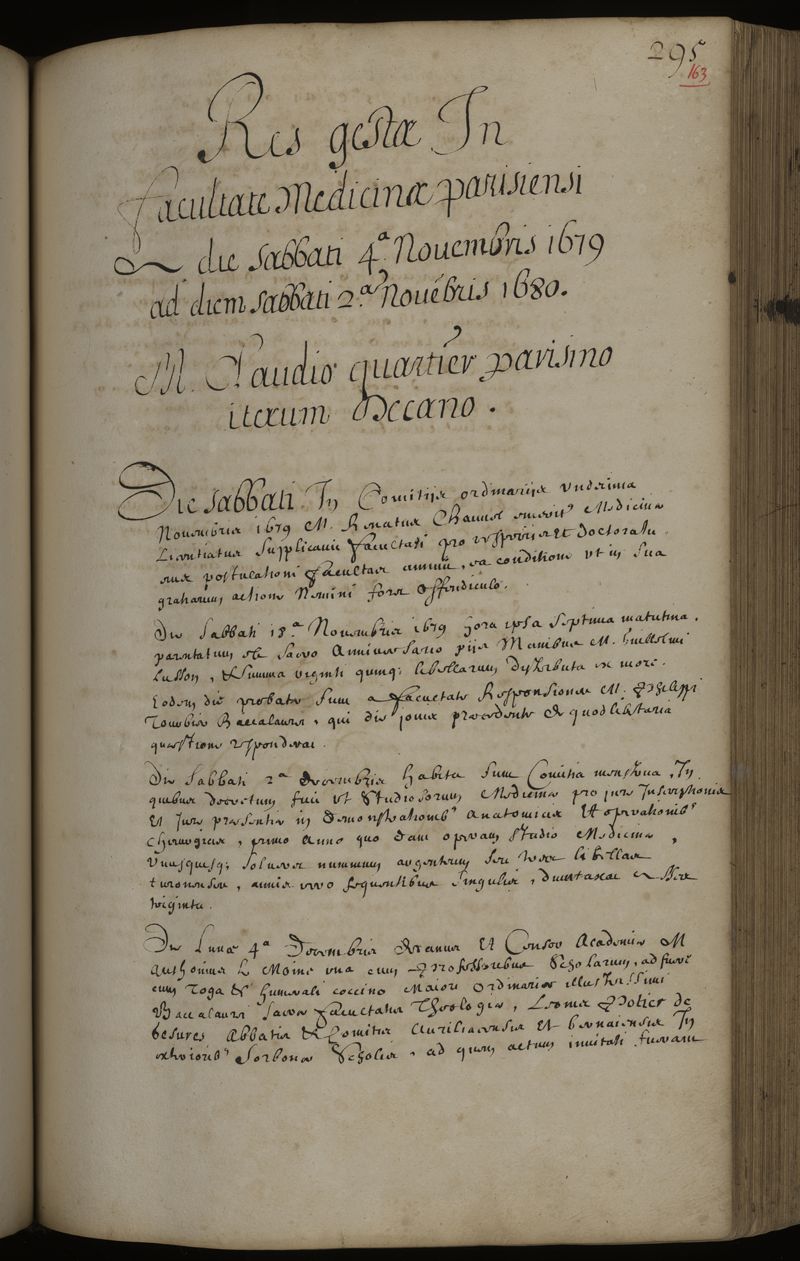 295
163
Res gestæ In
facultate Medicinæ parisiensi
A die sabbati 4.ª Nouembris 1679
ad diem sabbati 2.ª Nouēbris 1680.
M. Claudio quartier parisino
iterum Decano.
Die sabbati In Comitijs ordinarijs undecima
Nouembris 1679 M. Renatus Medicinæ
Licentiatus supplicauit facultati pro et doctoratu.
cuius postulationi facultas annuit, ea conditione ut in sua
gratiarum actione Nemini foret offendiculo.
Die Sabbati 18.ª Nouembris 1679 hora ipsa septima matutina.
parentatum est sacro Anniuersario pijs Manibus M. Guillelmi
Lusson, & summa viginti quinq; libellarum distributa ex more.
Eodem die probatæ sunt a facultate Responsiones M. Philippi
Baccalaurei, qui die jouis præcedente de quodlibetaria
quæstione responderat.
Die Sabbati 2ª Decembris habita sunt Comitia menstrua, In
quibus decretum fuit ut studiosorum Medicinæ pro jure Inscriptionis
et jure præsentiæ in demonstrationib9 anatomicis et operationib9
chirurgicis, primo anno quo dant operam studio Medicinæ,
unusquisq; solueret nummum argenteum seu tres libellas
turonenses, annis vero sequentibus singulis, duntaxat asses
viginti.
Die Lunæ 4ª Decembris Decanus et Censor Academiæ M
Anthonius Le Moine una cum Professoribus scholarum, adfuere
cum Toga & humerali coccino Maiori ordinariæ illustrissimi
Baccalaurei sacræ facultatis Theologiæ, Potier de
Gesures Abbatis & Comitis Aureliacensis et bernaiensis In
exterioribꝰ Sorbonæ scholis, ad quem actum inuitati fuerant